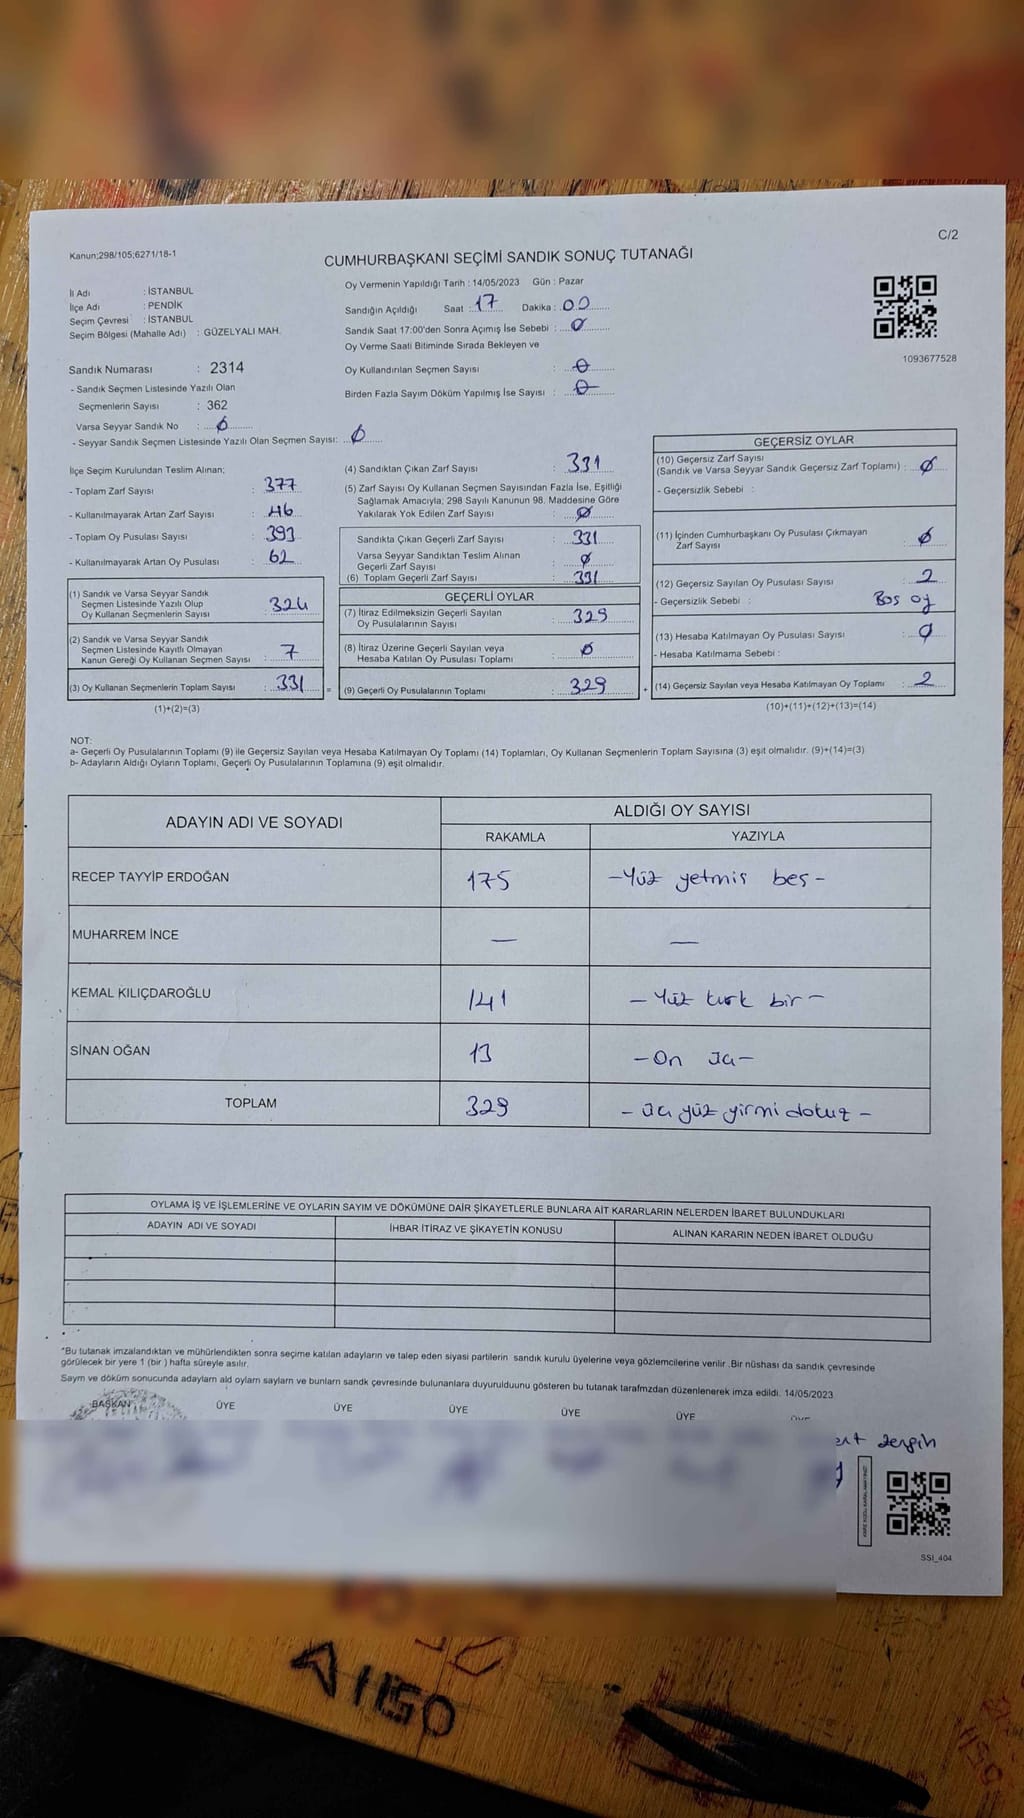 C/2
Kanun;298/105;6271/18-1
CUMHURBAŞKANI SEÇİMİ SANDIK SONUÇ TUTANAĞI
İl Adı : İSTANBUL
İlçe Adı : PENDİK
Seçim Çevresi : İSTANBUL
Seçim Bölgesi (Mahalle Adı) : GÜZELYALI MAH.
Oy Vermenin Yapıldığı Tarih : 14/05/2023 Gün : Pazar
Sandığın Açıldığı Saat : 17 Dakika : 00
Sandık Saat 17:00'den Sonra Açımış İse Sebebi : 0
Oy Verme Saati Bitiminde Sırada Bekleyen ve
Oy Kullandırılan Seçmen Sayısı : 0
Birden Fazla Sayım Döküm Yapılmış İse Sayısı : 0
1093677528
Sandık Numarası : 2314
- Sandık Seçmen Listesinde Yazılı Olan
Seçmenlerin Sayısı : 362
Varsa Seyyar Sandık No : 0
- Seyyar Sandık Seçmen Listesinde Yazılı Olan Seçmen Sayısı: 0
İlçe Seçim Kurulundan Teslim Alınan;
- Toplam Zarf Sayısı : 377
- Kullanılmayarak Artan Zarf Sayısı : 46
- Toplam Oy Pusulası Sayısı : 393
- Kullanılmayarak Artan Oy Pusulası : 62
(1) Sandık ve Varsa Seyyar Sandık
Seçmen Listesinde Yazılı Olup
Oy Kullanan Seçmenlerin Sayısı : 324
(2) Sandık ve Varsa Seyyar Sandık
Seçmen Listesinde Kayıtlı Olmayan
Kanun Gereği Oy Kullanan Seçmen Sayısı : 7
(3) Oy Kullanan Seçmenlerin Toplam Sayısı : 331 =
(1)+(2)=(3)
(4) Sandıktan Çıkan Zarf Sayısı : 331
(5) Zarf Sayısı Oy Kullanan Seçmen Sayısından Fazla İse, Eşitliği
Sağlamak Amacıyla; 298 Sayılı Kanunun 98. Maddesine Göre
Yakılarak Yok Edilen Zarf Sayısı : 0
Sandıkta Çıkan Geçerli Zarf Sayısı : 331
Varsa Seyyar Sandıktan Teslim Alınan
Geçerli Zarf Sayısı : 0
(6) Toplam Geçerli Zarf Sayısı : 331
GEÇERLİ OYLAR
(7) İtiraz Edilmeksizin Geçerli Sayılan
Oy Pusulalarının Sayısı : 329
(8) İtiraz Üzerine Geçerli Sayılan veya
Hesaba Katılan Oy Pusulası Toplamı : 0
(9) Geçerli Oy Pusulalarının Toplamı : 329 +
GEÇERSİZ OYLAR
(10) Geçersiz Zarf Sayısı
(Sandık ve Varsa Seyyar Sandık Geçersiz Zarf Toplamı) : 0
- Geçersizlik Sebebi :
(11) İçinden Cumhurbaşkanı Oy Pusulası Çıkmayan
Zarf Sayısı : 0
(12) Geçersiz Sayılan Oy Pusulası Sayısı : 2
- Geçersizlik Sebebi : Boş oy
(13) Hesaba Katılmayan Oy Pusulası Sayısı : 0
- Hesaba Katılmama Sebebi :
(14) Geçersiz Sayılan veya Hesaba Katılmayan Oy Toplamı : 2
(10)+(11)+(12)+(13)=(14)
NOT:
a- Geçerli Oy Pusulalarının Toplamı (9) ile Geçersiz Sayılan veya Hesaba Katılmayan Oy Toplamı (14) Toplamları, Oy Kullanan Seçmenlerin Toplam Sayısına (3) eşit olmalıdır. (9)+(14)=(3)
b- Adayların Aldığı Oyların Toplamı, Geçerli Oy Pusulalarının Toplamına (9) eşit olmalıdır.
ADAYIN ADI VE SOYADI
ALDIĞI OY SAYISI
RAKAMLA YAZIYLA
RECEP TAYYİP ERDOĞAN 175 -Yüz yetmiş beş-
MUHARREM İNCE — —
KEMAL KILIÇDAROĞLU 141 -Yüz kırk bir-
SİNAN OĞAN 13 -On üç-
TOPLAM 329 -üç yüz yirmi dokuz-
OYLAMA İŞ VE İŞLEMLERİNE VE OYLARIN SAYIM VE DÖKÜMÜNE DAİR ŞİKAYETLERLE BUNLARA AİT KARARLARIN NELERDEN İBARET BULUNDUKLARI
ADAYIN ADI VE SOYADI İHBAR İTİRAZ VE ŞİKAYETİN KONUSU ALINAN KARARIN NEDEN İBARET OLDUĞU
*Bu tutanak imzalandıktan ve mühürlendikten sonra seçime katılan adayların ve talep eden siyasi partilerin sandık kurulu üyelerine veya gözlemcilerine verilir .Bir nüshası da sandık çevresinde
görülecek bir yere 1 (bir ) hafta süreyle asılır.
Sayım ve döküm sonucunda adayların ald oyların sayları ve bunların sandk çevresinde bulunanlara duyurulduunu gösteren bu tutanak tarafmzdan düzenlenerek imza edildi. 14/05/2023
BAŞKAN ÜYE ÜYE ÜYE ÜYE ÜYE
SSI_404
AIISO